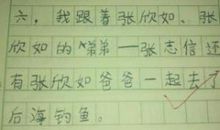 六，我跟着张欣如、张
欣如的弟弟——张志信还
有张欣如爸爸一起去了
后海钓鱼。